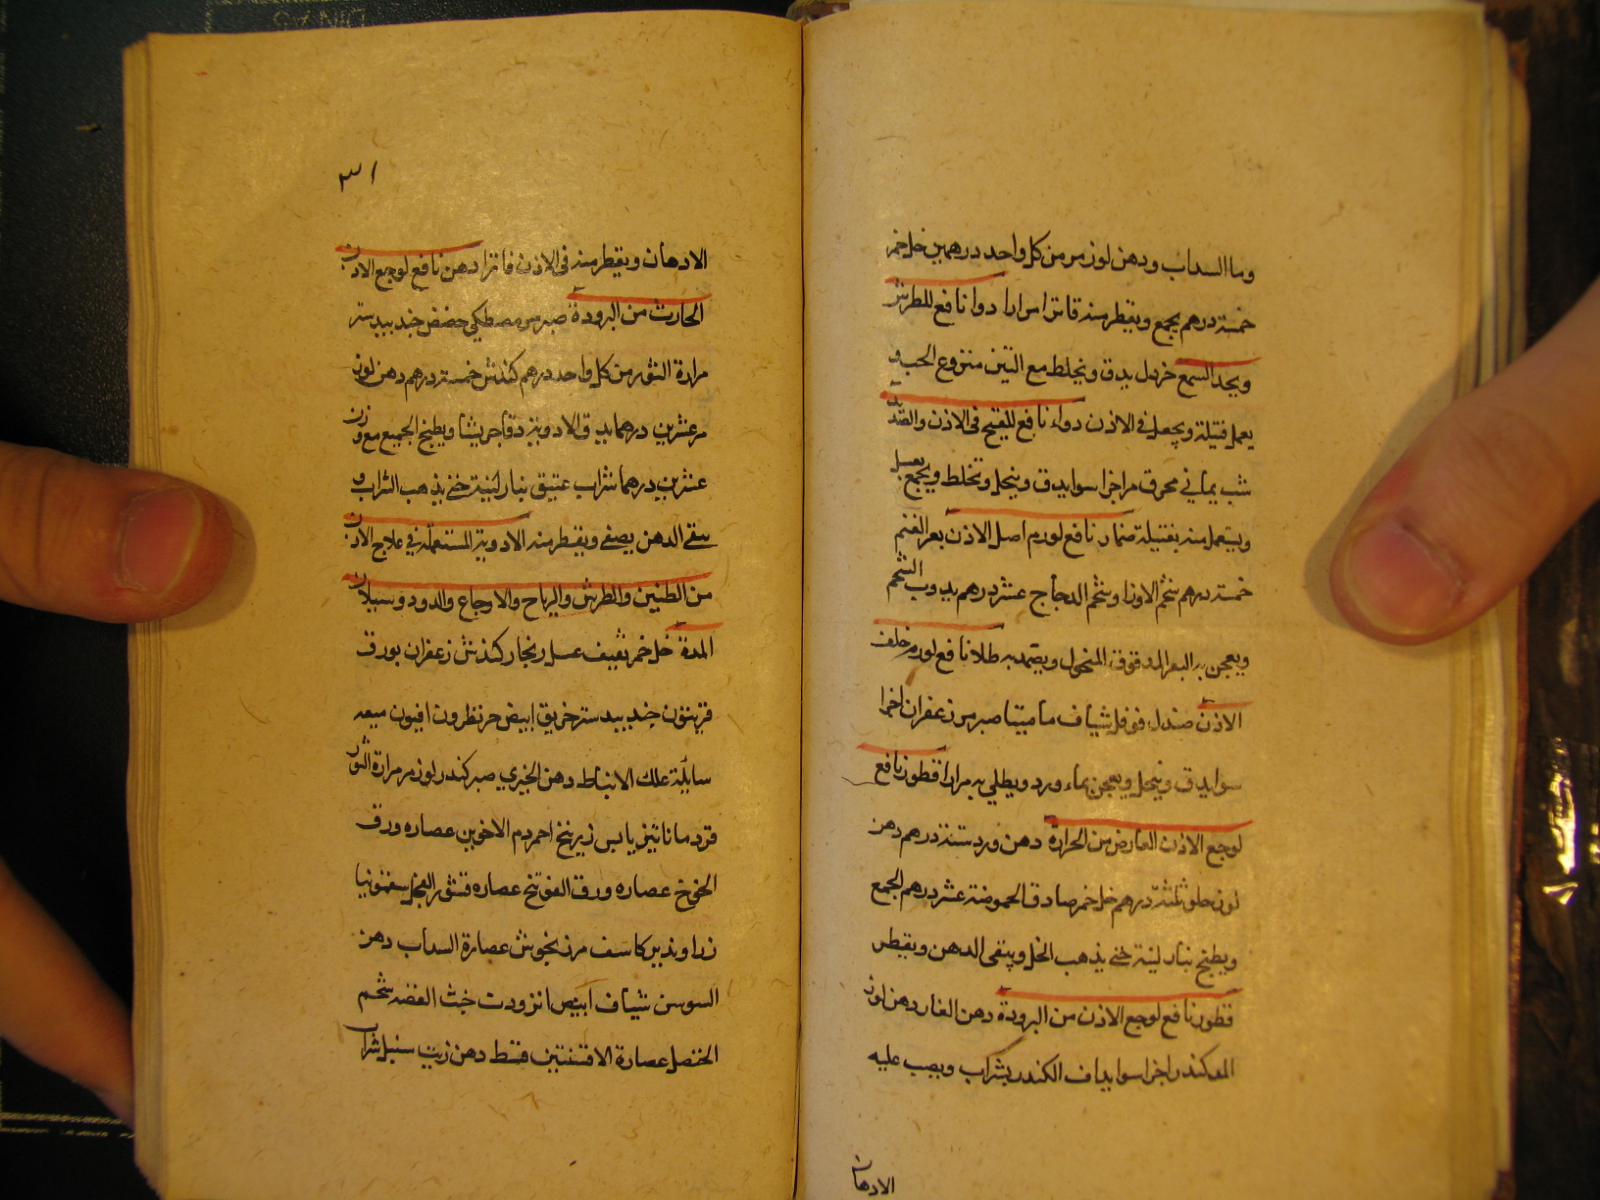 وما السداب ودهن لوز مر من كل واحد درهمين خل خمر
خمسة درهم يجمع ويقطر منه فاترا مرارا دوا نافع للطرش
ويحد السمع خردل يدق ويخلط مع التين منزوع الحب و
يعمل فتيلة ويجعل في الاذن دواء نافع للقيح في الاذن والصديد
شب يماني محرق مر اجزا سوا يدق وينخل وتخلط ويجمع بعسل
ويستعمل منه بفتيلة ضماد نافع لورم اصل الاذن بعر الغنم
خمسة درهم شحم الاوز وشحم الدجاج عشر درهم يدوب الشحم
ويعجن به البعر المدقوق المنخول ويضمد به طلا نافع لورم خلف
الاذن صندل فوفل شياف ماميثا صبر مر زعفران اجزا
سوا يدق وينخل ويعجن بماء ورد ويطلي به مرارا قطور نافع
لوجع الاذن العارض من الحرارة دهن ورد ستة درهم دهن
لوز حلو ثلثة درهم خل خمر صادق الحموضة عشر درهم الجمع
ويطبخ بنار لينة حتي يذهب الخل ويبقى الدهن ويقطر
قطور نافع لوجع الاذن من البرودة دهن الغار دهن لوز
المر كندر اجزا سوا يداف الكندر بشراب ويصب عليه
الادهان
٣١
الادهان ويقطر منه في الاذن فاترا دهن نافع لوجع الاذن
الحادث من البرودة صبر مر مصطكي حضض جندبيدستر
مرارة الثور من كل واحد درهم كندش خمسة درهم دهن لوز
مر عشرين درهما يدق الادوية دقا جريشا ويطبخ الجميع مع وزن
عشرين درهما شراب عتيق بنار لينة حتي يذهب الشراب و
يبقي الدهن يصفي ويقطر منه الادوية المستعملة في علاج الاذن
من الطنين والطرش والرياح والاوجاع والدود وسيلان
المدة خل خمر ثقيف عسل زنجار كندش زعفران بورق
فربيون جندبيدستر خربق ابيض حر نطرون افيون ميعه
سايلة علك الانباط دهن الخيري صبر كندر لوز مر مرارة الثور
قردمانا تين يابس زرنيخ احمر دم الاخوين عصاره ورق
الخوخ عصاره ورق الفوتنج عصاره قشور الفجل سقمونيا
زراوند مرزنجوش عصارة السداب دهن
السوسن شياف ابيض انزروت خبث الفضه شحم
الحنضل عصارة الافسنتين قسط دهن زيت سنبل شراب